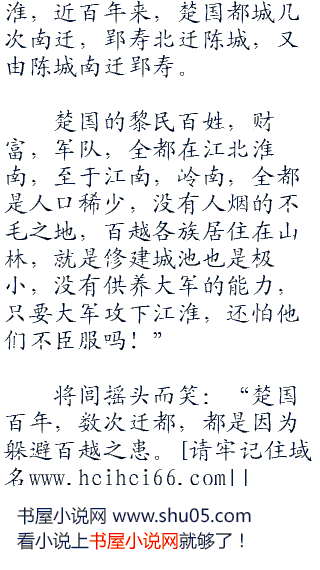 淮，近百年来，楚国都城几
次南迁，郢寿北迁陈城，又
由陈城南迁郢寿。
楚国的黎民百姓，财
富，军队，全都在江北淮
南，至于江南，岭南，全都
是人口稀少，没有人烟的不
毛之地，百越各族居住在山
林，就是修建城池也是极
小，没有供养大军的能力，
只要大军攻下江淮，还怕他
们不臣服吗！”
将闾摇头而笑：“楚国
百年，数次迁都，都是因为
躲避百越之患。[请牢记住域
名www.hcihci66.com||
书屋小说网 www.shu05.com
看小说上书屋小说网就够了！